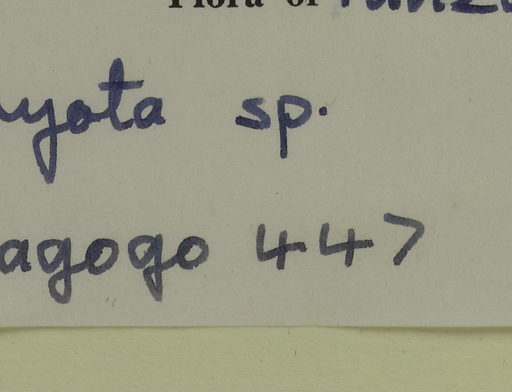 Flora of Tanz
yota sp.
agogo 447